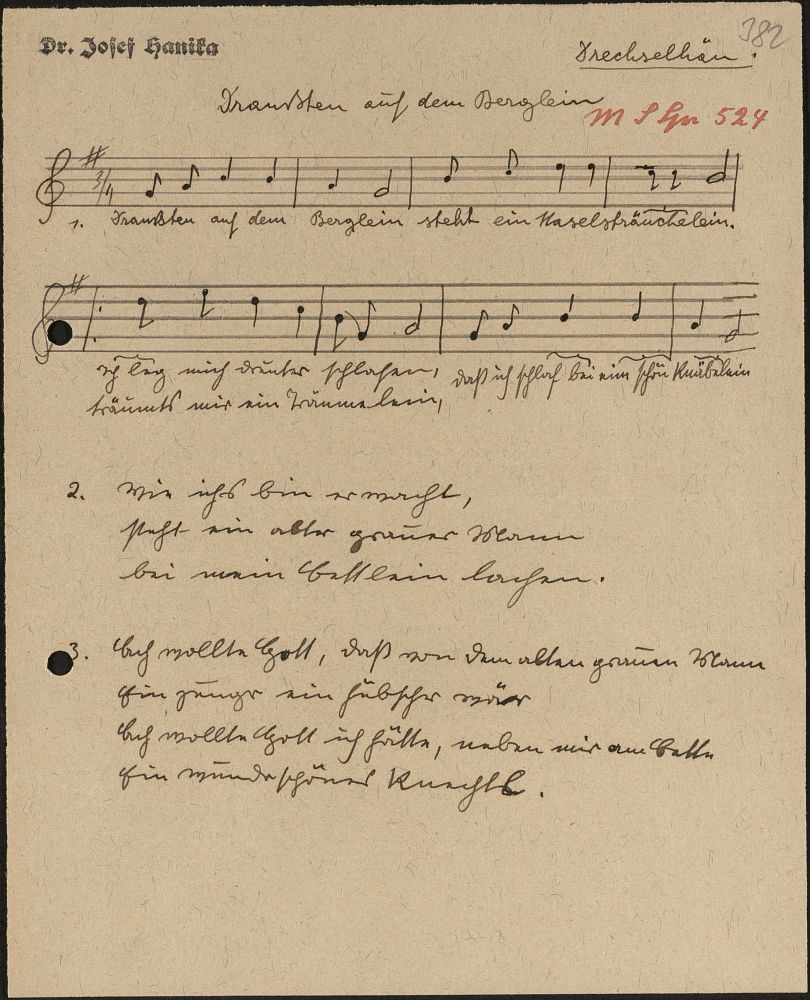 382
Dr. Josef Hanika
Drechselhän.
Draußten auf dem Berglein
M S Gr 524
3/4
1. Draußten auf dem Berglein steht ein Haselsträuchelein.
Ich leg mich drunter schlafen, daß ich schlaf bei eim schön Knäbelein
träumts mir ein Träumelein,
2. Wie ichs bin erwacht,
steht ein alter grauer Mann
bei mein Bettlein lachen.
3. Ach wollte Gott, daß von dem alten grauen Mann
Ein junger ein hübscher wär
Ach wollte Gott ich hätte, neben mir am Bette
Ein wunderschönes Knechtl.